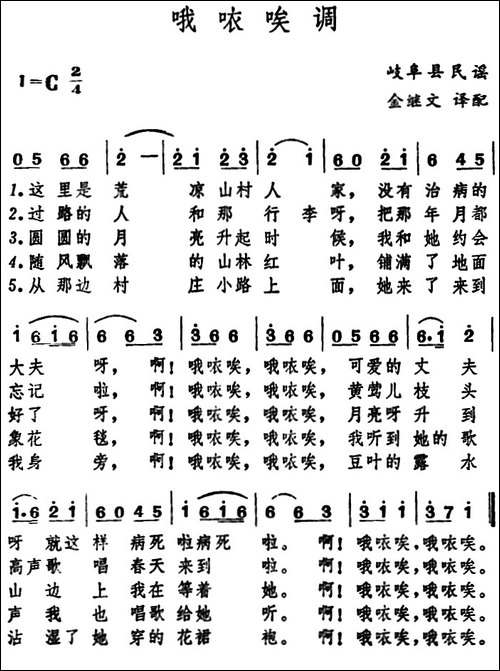 哦哝唉调
1=C 2/4
岐阜县民谣
金继文 译配
0 5 6 6 | 2 — | 2 1 2 3 | 2 1 | 6 0 2 1 | 6 4 5 |
1.这里是荒 凉山村人 家，没有治病的
2.过路的人 和那行李呀，把那年月都
3.圆圆的月 亮升起时 候，我和她约会
4.随风飘落 的山林红 叶，铺满了地面
5.从那边村 庄小路上 面，她来了来到
1 6 1 6 | 6 6 3 | 3 6 6 | 3 6 6 | 0 5 6 6 | 6·1 2 |
大夫 呀，啊！哦哝唉，哦哝唉，可爱的丈夫
忘记 啦，啊！哦哝唉，哦哝唉，黄莺儿枝头
好了 呀，啊！哦哝唉，哦哝唉，月亮呀升到
象花 毯，啊！哦哝唉，哦哝唉，我听到她的歌
我身 旁，啊！哦哝唉，哦哝唉，豆叶的露水
1·6 2 1 | 6 0 4 5 | 1 6 1 6 | 6 6 3 | 3 1 1 | 3 7 1 ‖
呀 就这样 病死啦病死 啦。啊！哦哝唉，哦哝唉。
高声歌 唱 春天来到 啦。啊！哦哝唉，哦哝唉。
山 边上 我在等着 她。啊！哦哝唉，哦哝唉。
声 我也 唱歌给她 听。啊！哦哝唉，哦哝唉。
沾 湿了她 穿的花裙 袍。啊！哦哝唉，哦哝唉。